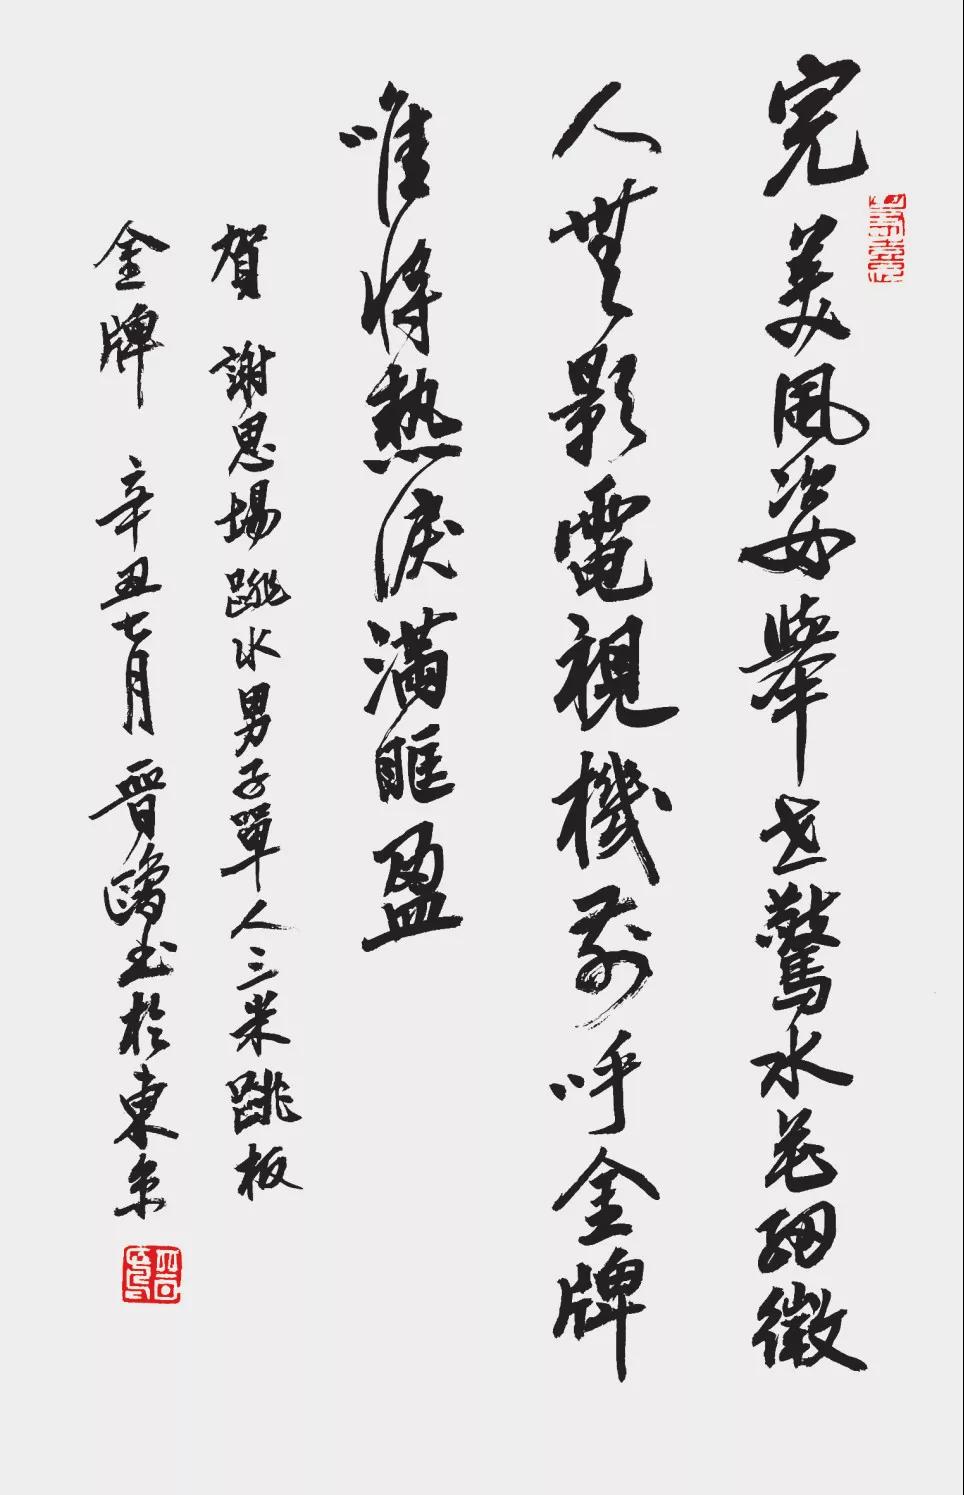 完美風姿舉世驚水花細微
人無影電視機前呼金牌
唯將熱淚滿眶盈
賀 謝思場跳水男子單人三米跳板
金牌 辛丑七月 晉鷗書於東京